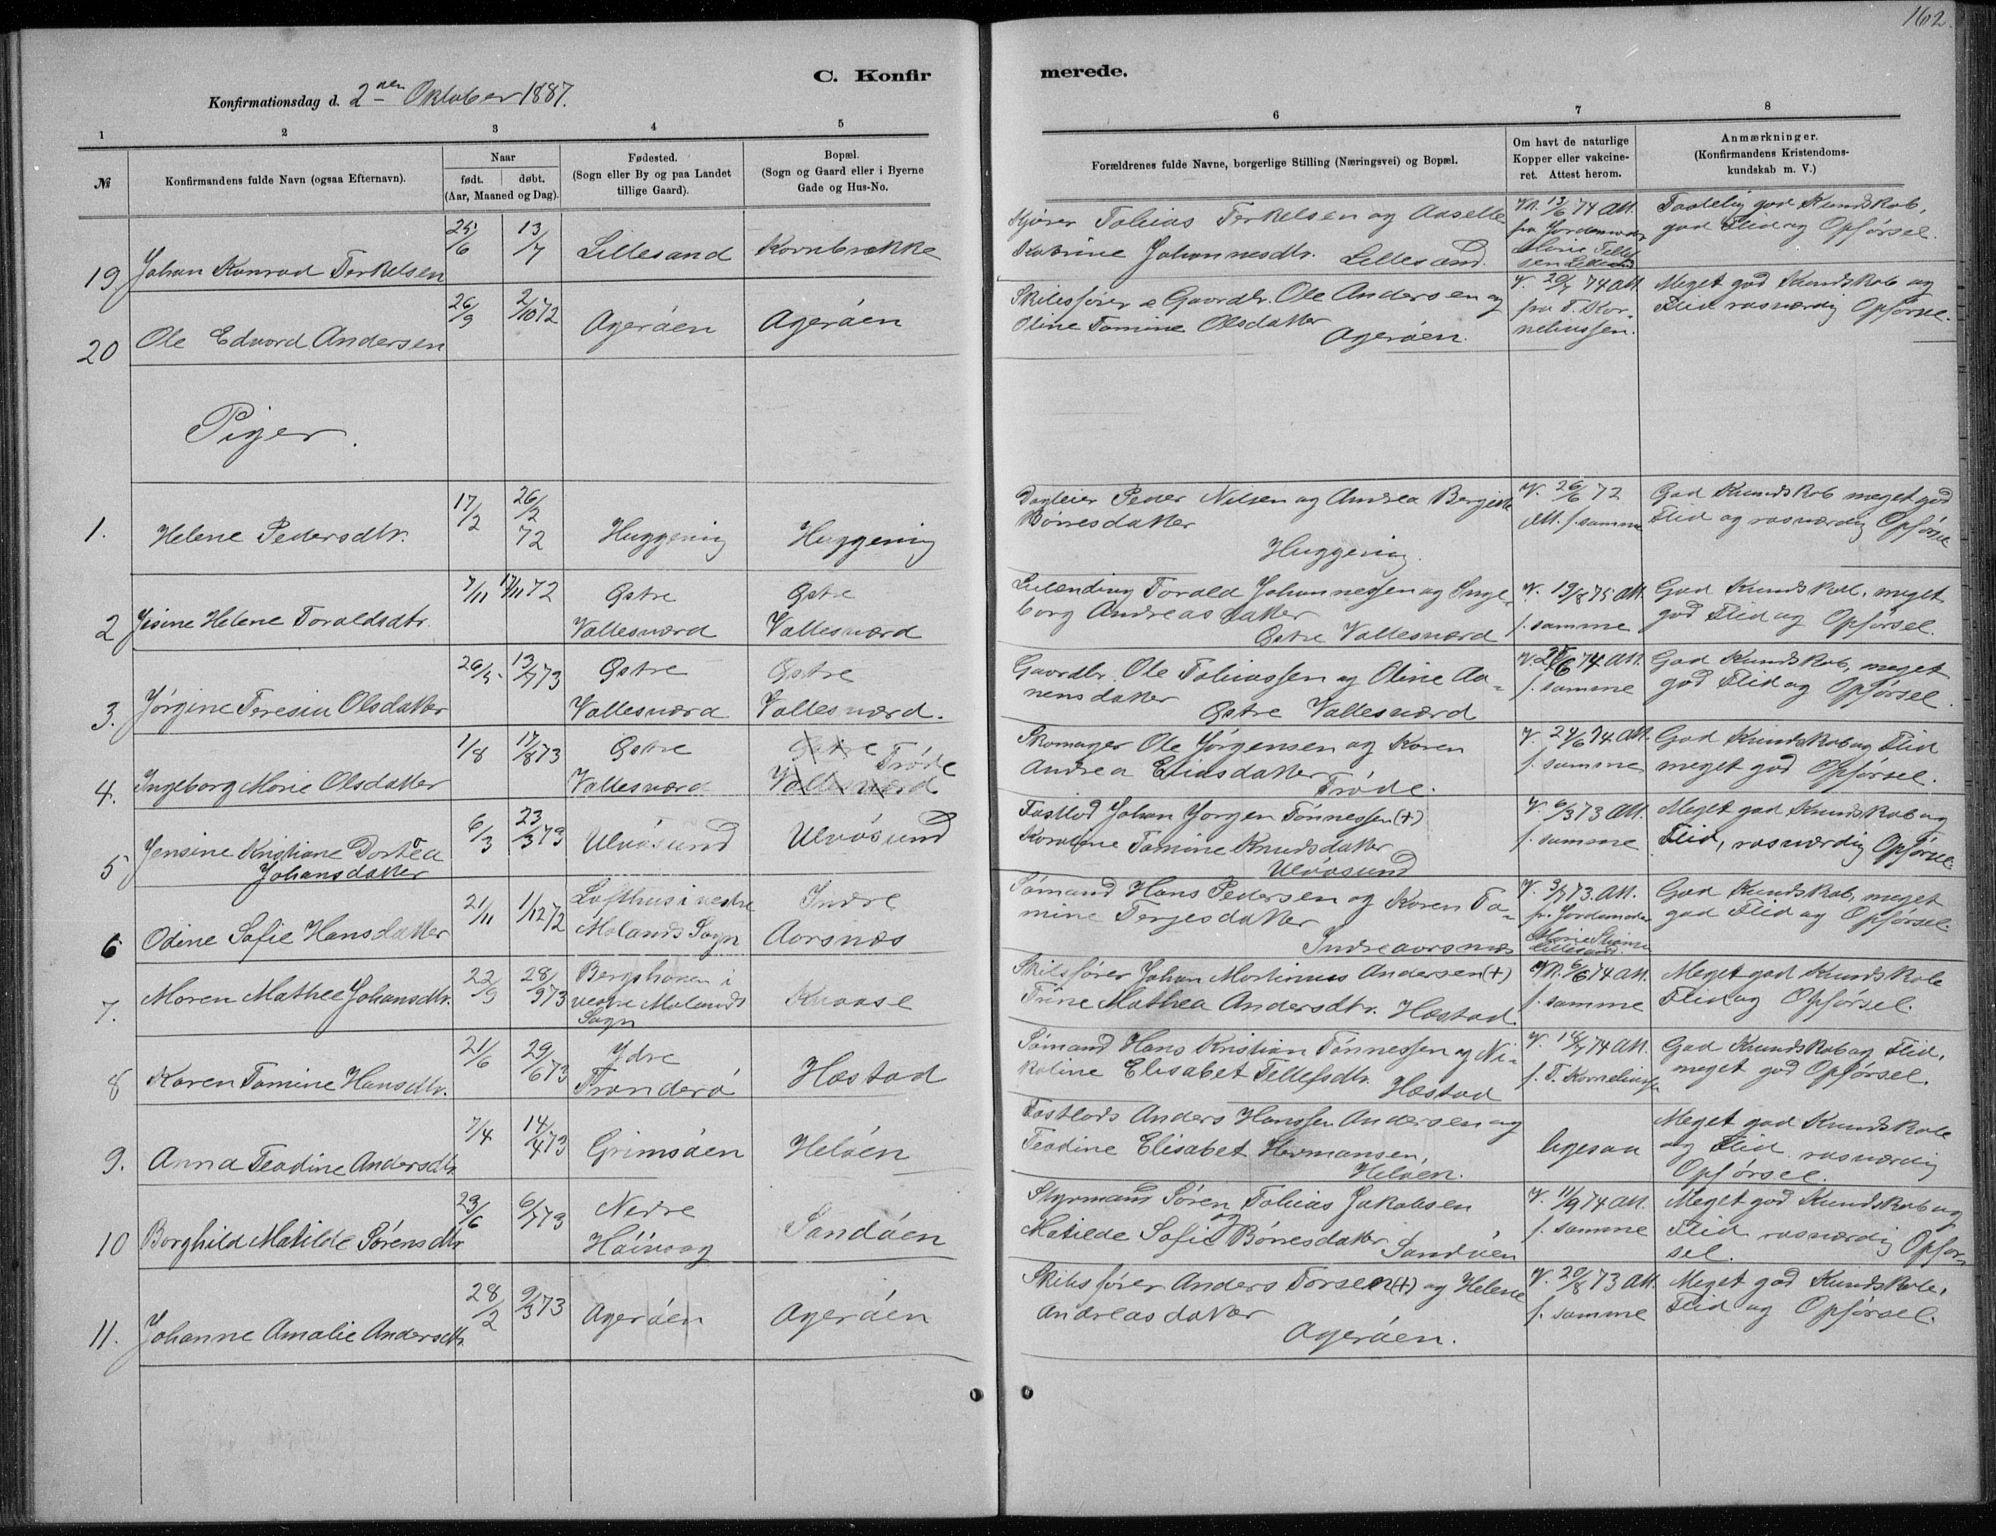 162.
C. Konfirmerede.
Konfirmationsdag d. 2den Oktober 1887.
1 2 3 4 5 6 7 8
№ Konfirmandens fulde Navn (ogsaa Efternavn). Naar født. døbt. (Aar, Maaned og Dag). Fødested. (Sogn eller By og paa Landet tillige Gaard). Bopæl. (Sogn og Gaard eller i Byerne Gade og Hus-No. Forældrenes fulde Navne, borgerlige Stilling (Næringsvei) og Bopæl. Om havt de naturlige Kopper eller vakcineret. Attest herom. Anmærkninger. (Konfirmandens Kristendomskundskab m. V.)
19 Johan Konrad Terkelsen 25/6 13/7 Lillesand Kornbrække
Tobias Terkelsen og Aaselle
Katrine Johannesdtr. Lillesand.
13/6 74 Att. fra Jordemoder
Taalelig god Kundskab,
god Flid og Opførsel.
20 Ole Edvard Andersen 26/9 2/10 72 Agerøen Agerøen
Skibsfører & Gaardbr. Ole Andersen og
Oline Tomine Olsdatter
Agerøen.
V. 20/7 74 Att. fra T. Korneliussen.
Meget god Kundskab og
Flid rosværdig Opførsel.
Piger.
1. Helene Pedersdtr. 17/2 26/2 72 Huggening Huggening
Peder Nilsen og Andrea Bergitte
Børresdatter
Huggening.
V. 26/6 72 Att. f. samme
God Kundskab meget god
Flid og rosværdig Opførsel
2 Jisine Helene Toraldsdtr. 7/11 17/11 72 Østre Vallesværd Østre Vallesværd
Leilending Torald Johannessen og Ingeborg
Andreasdatter
Østre Vallesværd
V. 19/8 75 Att. f. samme
God Kundskab, meget
god Flid og Opførsel.
3. Jørgine Teresia Olsdatter 26/5 13/7 73 Østre Vallesværd Østre Vallesværd.
Gaardbr. Ole Tobiassen og Oline Aanensdatter
Østre Vallesværd
V. 6 74 Att. f. samme
God Kundskab, meget
god Flid og Opførsel.
4. Ingeborg Marie Olsdatter 1/8 17/8 73 Østre Vallesværd Østre Vallesværd Trøde
Skomager Ole Jørgensen og Karen
Andrea Eliasdatter
Trøde.
V. 24/6 74. Att. f. samme
God Kundskab og Flid
meget god Opførsel.
5 Jensine Kristiane Dortea Johansdatter 6/3 23/3 73 Ulvøsund Ulvøsund
Fastlod Johan Jørgen Tønnessen (+)
Karoline Tomine Knudsdatter
Ulvøsund
V. 6/9 73 Att. f. samme
Meget god Kundskab og
Flid, rosværdig Opførsel.
6 Odine Sofie Hansdatter 21/11 1/12 72 Lofthus i vestre Molands Sogn Indre Aarsnæs
Sømand Hans Pedersen og Karen Tomine
Terjesdatter
Indre aarsnæs
V. 3/7 73. Att. fr. Jordemoder
God Kundskab, meget
god Flid og Opførsel.
7. Maren Mathea Johansdtr. 22/9 28/9 73 i vestre Molands Sogn Knaase
Skibsfører Johan Martinus Andersen (+)
Trine Mathea Andersdtr. Hæstad.
6/6 74 Att. f. samme
Meget god Kundskab
Flid og Opførsel.
8 Karen Tomine Hansdtr. 21/6 29/6 73 Ydre Tronderø Hæstad
Sømand Hans Kristian Tønnessen og Nikoline
Elisabet Tellefsdtr.
Hæstad
V. 14/7 74 Att. f. T. Korneliussen
God Kundskab og Flid,
meget god Opførsel.
9. Anna Teodine Andersdtr. 7/4 14/4 73 Grimsøen Heløen
Fastlods Anders Hanssen Andersen og
Teodine Elisabet Hermansen,
Heløen.
ligesaa
Meget god Kundskab
og Flid rosværdig
Opførsel.
10 Borghild Matilde Sørensdtr. 29/6 6/7 73 Nedre Høivaag Sandøen
Styrmand Søren Tobias Jakobsen
og
Matilde Sofie Børresdatter Sandøen
V. 11/9 74 Att. f. samme
Meget god Kundskab og
Flid rosværdig Opførsel.
11. Johanne Amalie Andersdtr. 28/2 9/3 73 Agerøen Agerøen
Skibsfører Anders Torsen (+) og Helene
Andreasdatter
Agerøen.
V. 20/8 73 Att. f. samme
Meget god Kundskab,
Flid og Opførsel.